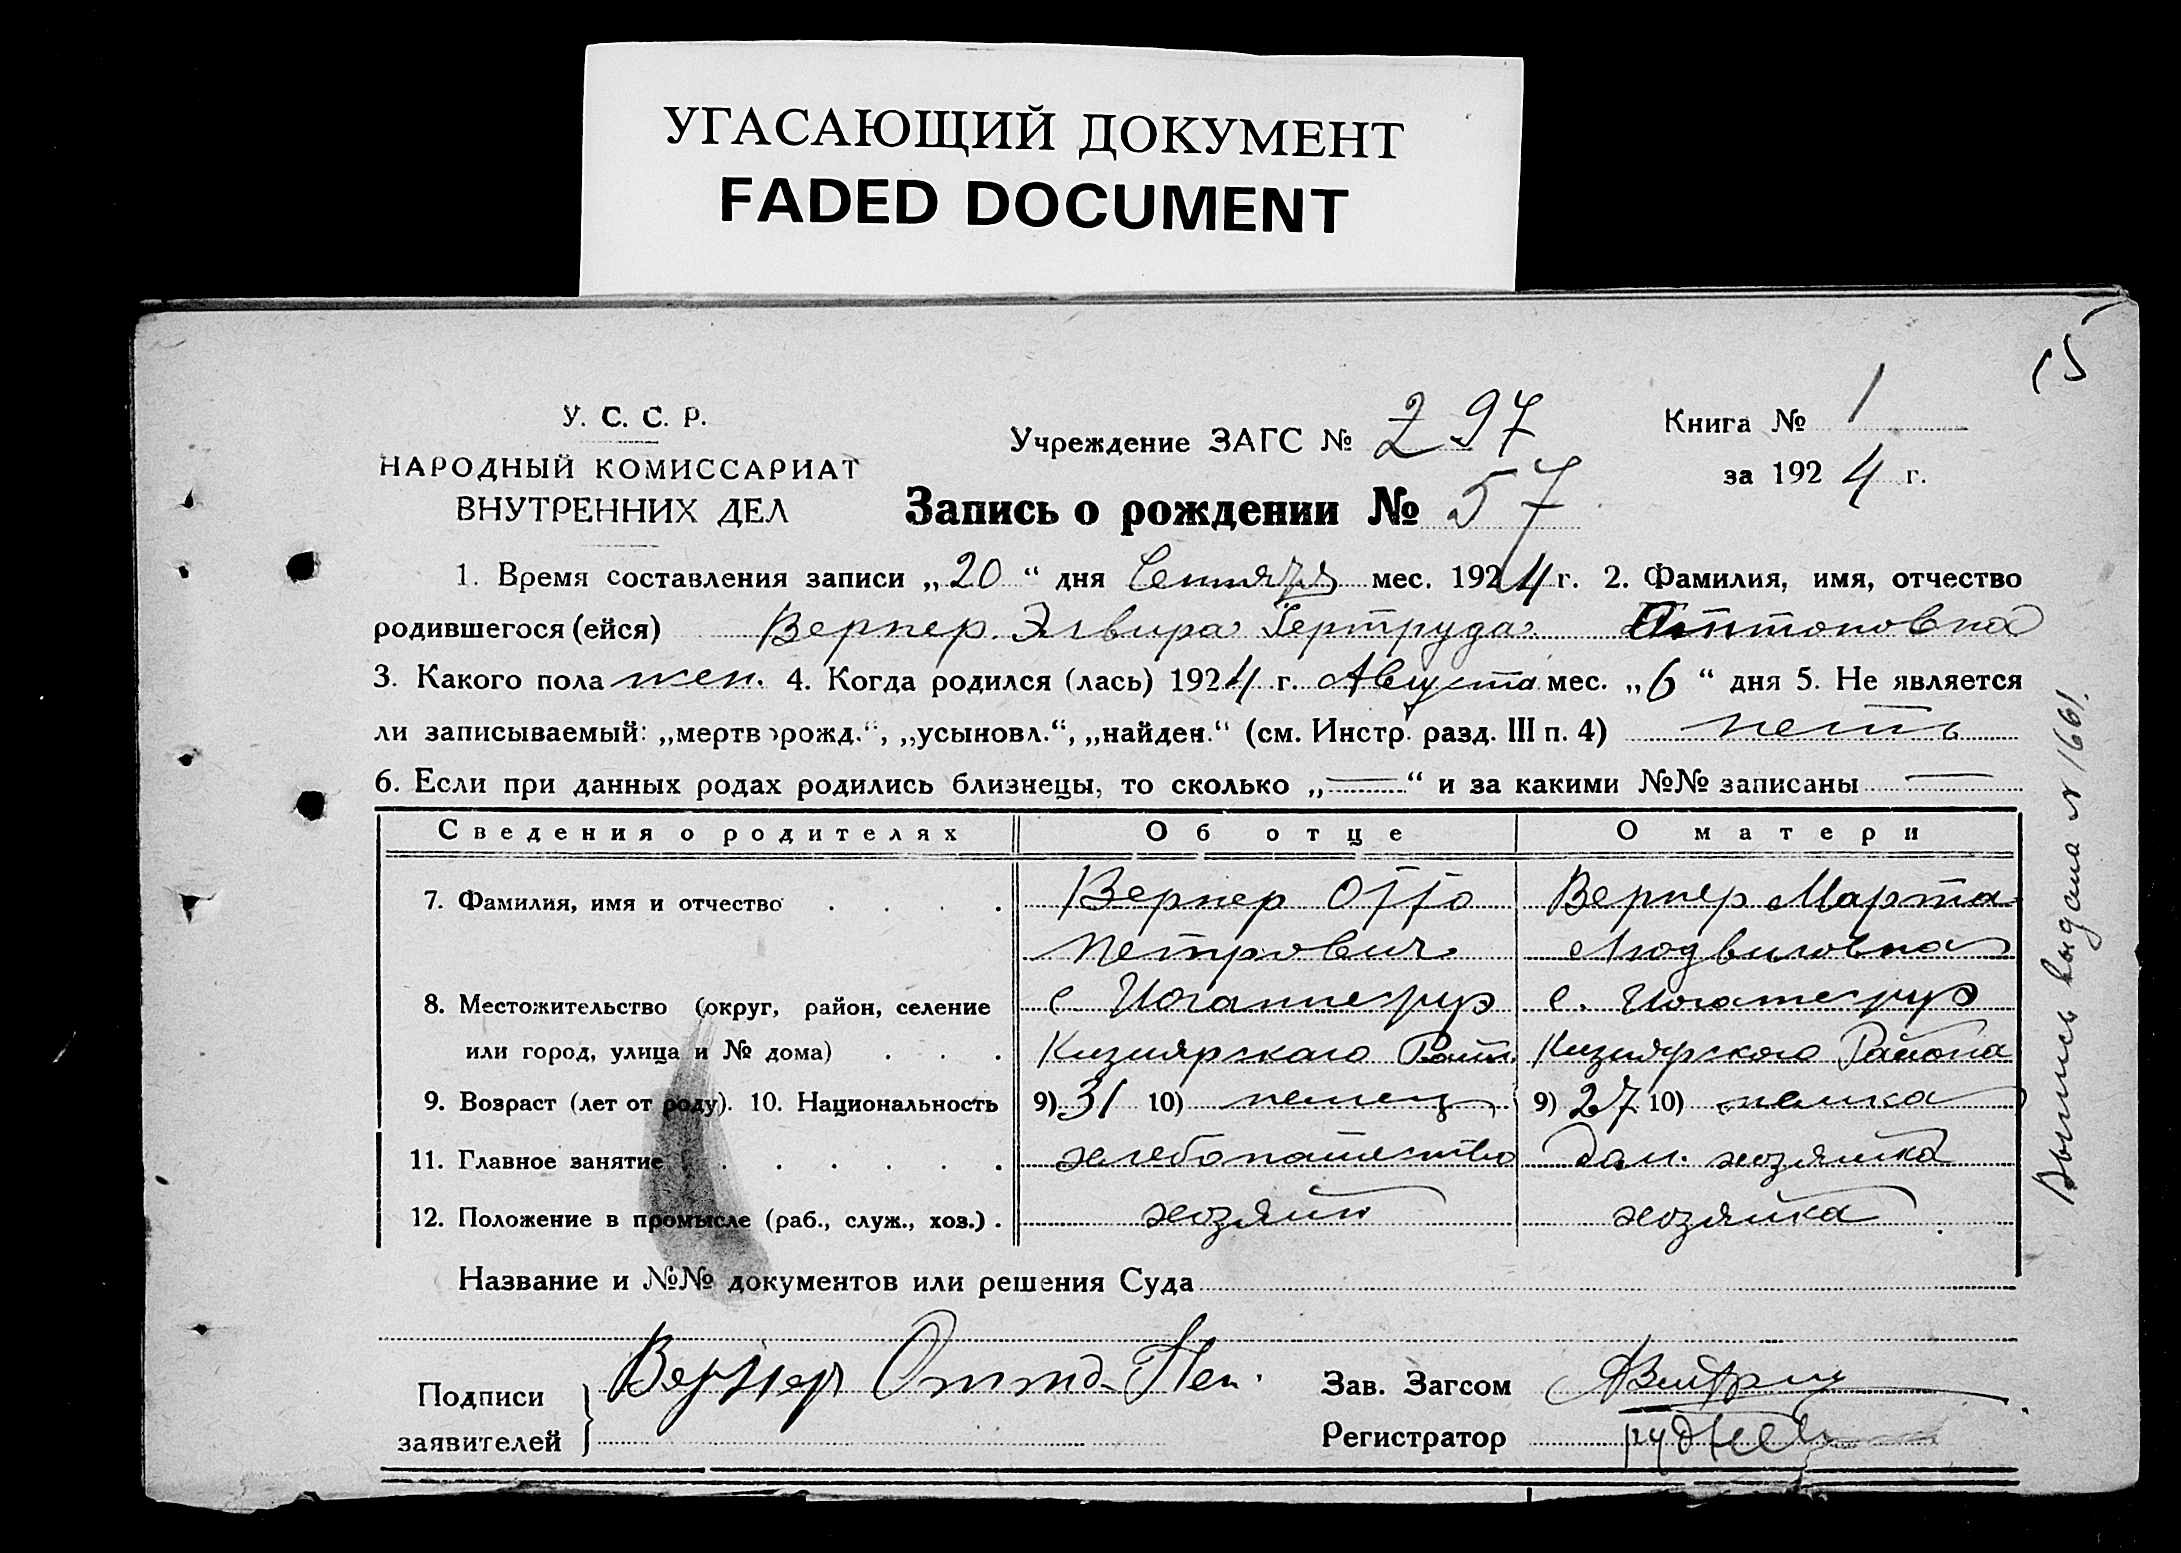 УГАСАЮЩИЙ ДОКУМЕНТ
FADED DOCUMENT
15
У. С. С. Р.
НАРОДНЫЙ КОМИССАРИАТ
ВНУТРЕННИХ ДЕЛ
Учреждение ЗАГС № 297
Книга № 1
за 1924 г.
Запись о рождении № 57
1. Время составления записи „20“ дня Сентября мес. 1924 г. 2. Фамилия, имя, отчество
родившегося (ейся) Вернер Эльвира Гертруда
3. Какого пола жен. 4. Когда родился (лась) 1924 г. Августа мес. „6“ дня 5. Не является
ли записываемый: „мертворожд.“, „усыновл.“, „найден.“ (см. Инстр. разд. III п. 4) нетъ
6. Если при данных родах родились близнецы, то сколько „—“ и за какими №№ записаны —
Сведения о родителях Об отце О матери
7. Фамилия, имя и отчество . . . . Вернер Отто Вернер Марта
Петрович Людвиговна
8. Местожительство (округ, район, селение с Иоганнесруэ с. Иоганнесруэ
или город, улица и № дома) . . . Кизиярскаго Кизиярского Района
9. Возраст (лет от роду). 10. Национальность 9) 31 10) немец 9) 27 10) немка
11. Главное занятие . . . . . . хлебопашество дом. хозяйка
12. Положение в промысле (раб., служ., хоз.) . хозяин хозяйка
Название и №№ документов или решения Суда
Подписи заявителей } Вернер Отто Пет.
Зав. Загсом
Регистратор
Выпись выдана № 1661.